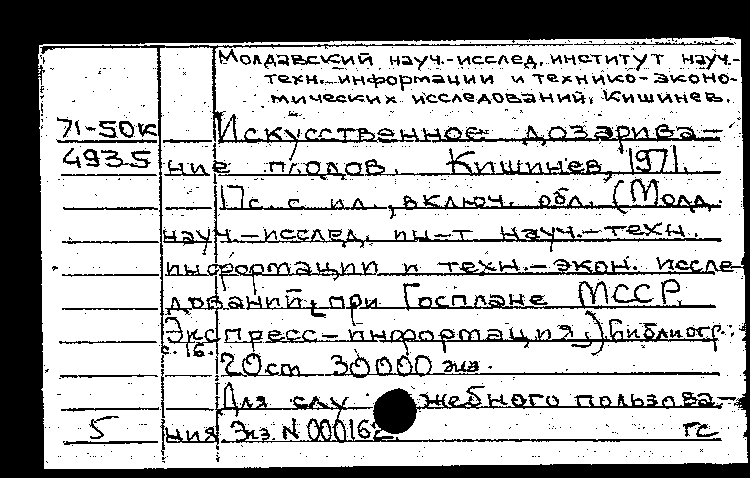 Молдавский науч.-исслед. институт науч.-
техн. информации и технико-эконо-
мических исследований, Кишинев.
71-50к Искусственное дозарива-
4935 ние плодов. Кишинев, 1971.
17с. с ил., включ. обл. (Молд.
науч.-исслед. ин-т науч.-техн.
информации и техн.-экон. иссле-
дований при Госплане МССР.
Экспресс-информация.) Библиогр.:
с. 16.
20см 30000 экз.
Для служебного пользова-
5 ния Экз. N 000162 гс